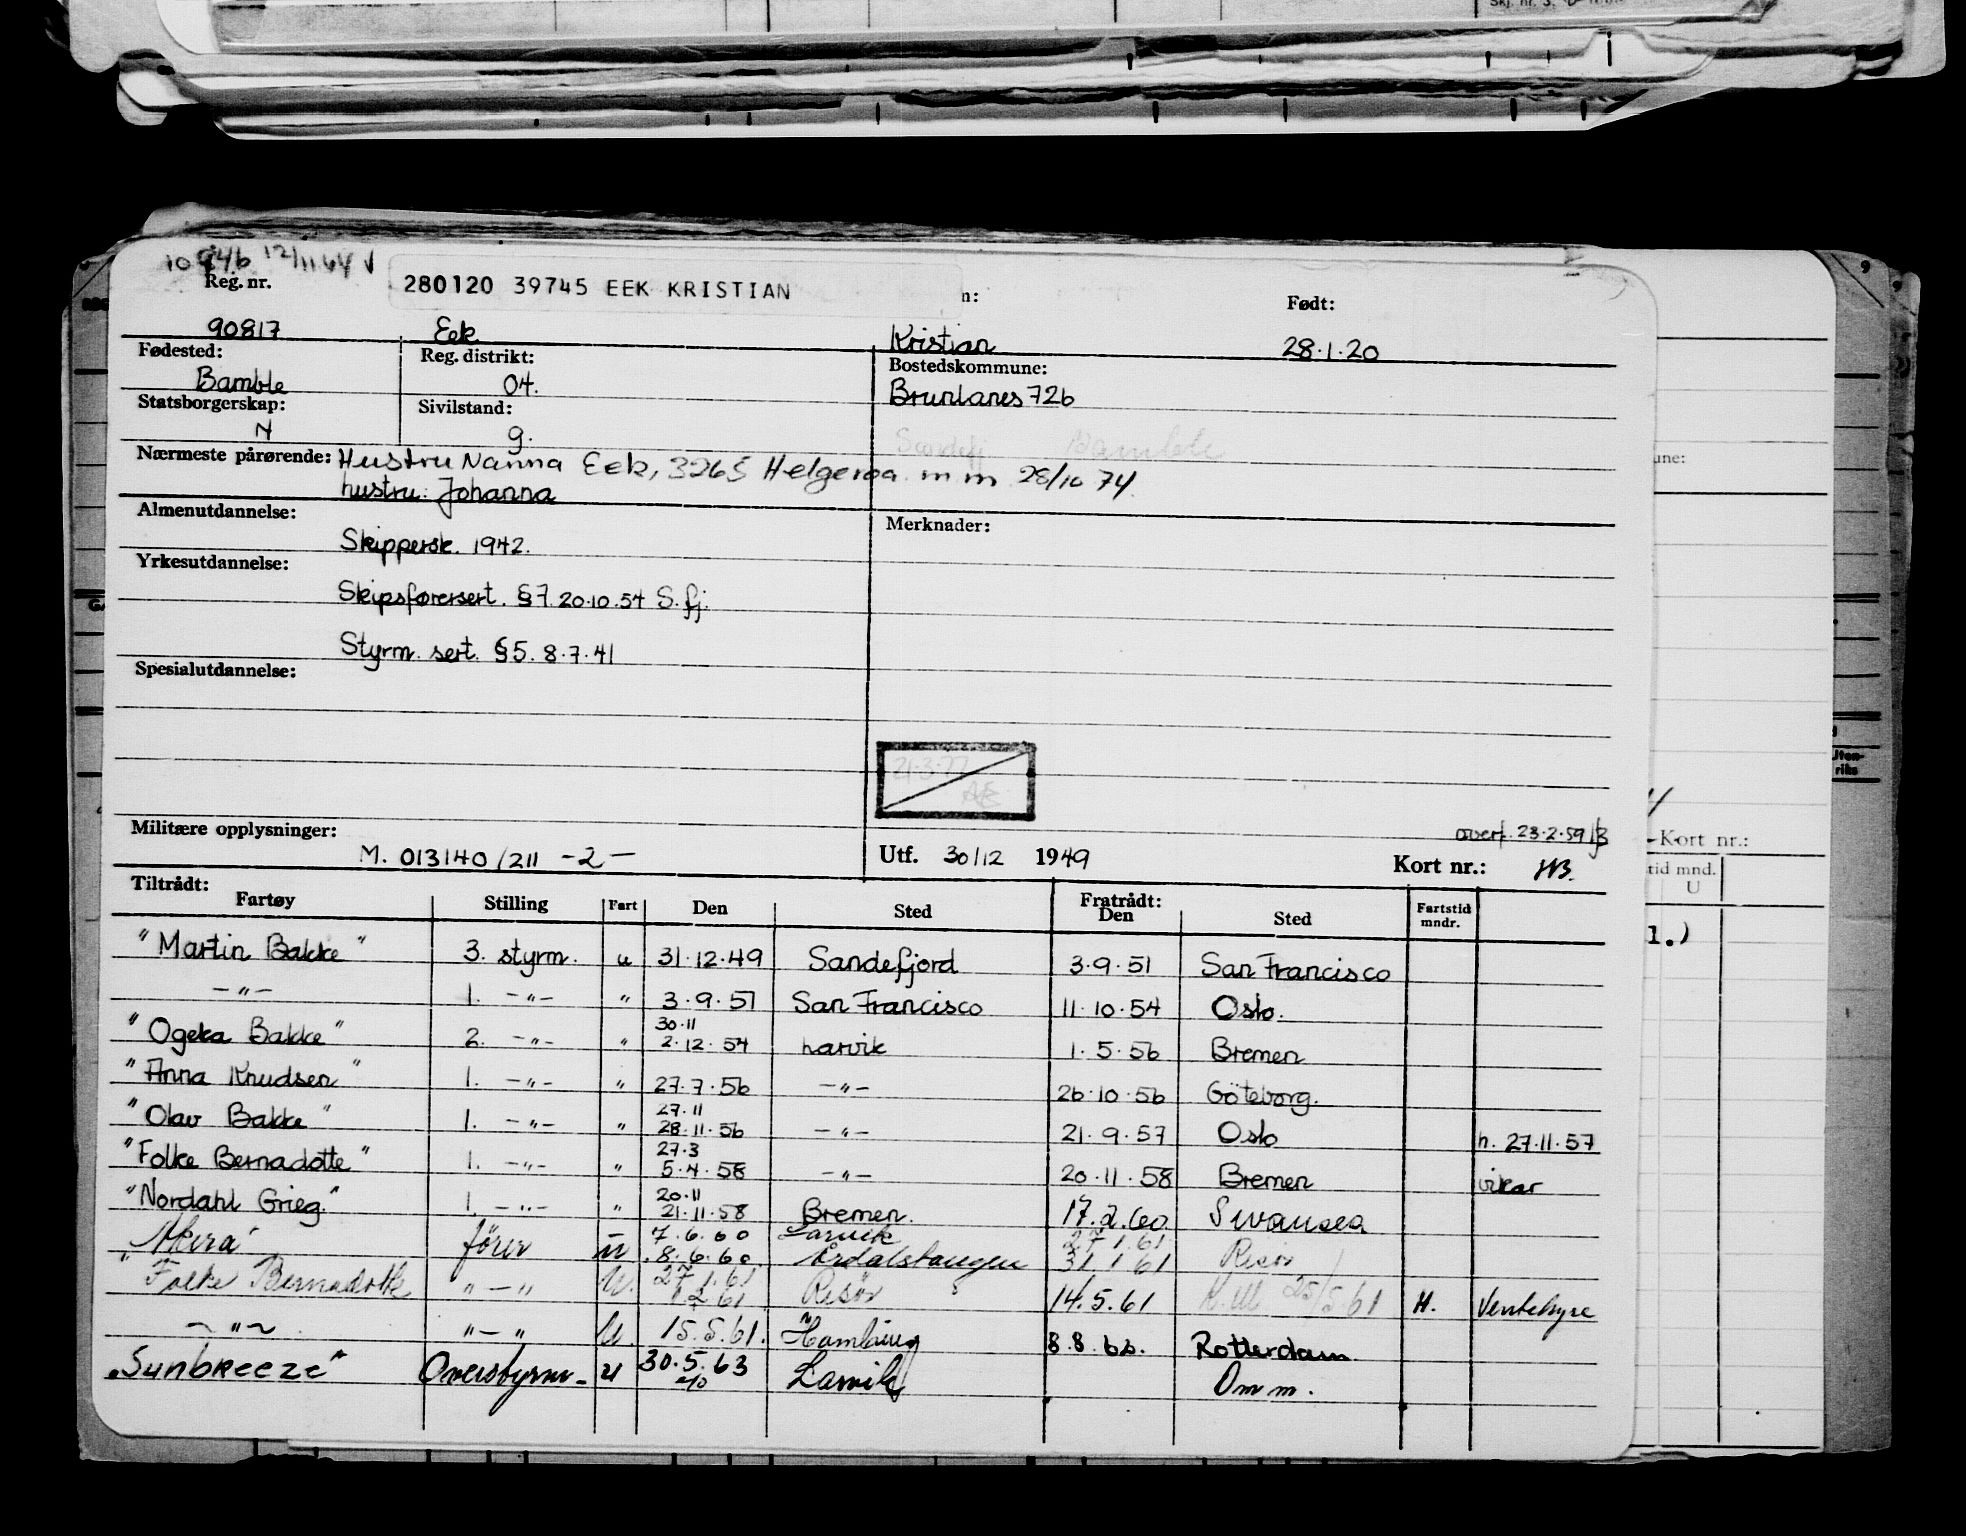 10946 12/11 64 √
Reg. nr. 280120 39745 EEK KRISTIAN n: Født:
90817 Eek Kristian 28.1.20
Fødested: Reg. distrikt: Bostedskommune:
Bamble 04. Brunlanes 726
Statsborgerskap: Sivilstand:
N g. Sandefj Bamble
Nærmeste pårørende: Hustru Nanna Eek, 3265 Helgeroa m m 28/10 74
hustru: Johanna
Almenutdannelse: Merknader:
Skippersk. 1942.
Yrkesutdannelse:
Skipsførersert. §7. 20.10.54 S.fj.
Styrm. sert. §5. 8.7.41
Spesialutdannelse:
21.3.77
Militære opplysninger: overf. 23.2.59
M. 013140/211 -2- Utf. 30/12 1949 Kort nr.:
Tiltrådt: Fratrådt:
Fartøy Stilling Fart Den Sted Den Sted Fartstid mndr.
"Martin Bakke" 3. styrm. u 31.12.49 Sandefjord 3.9.51 San Francisco
-"- 1. -"- " 3.9.51 San Francisco 11.10.54 Oslo.
30.11
"Ogeka Bakke" 2. -"- " 2.12.54 Larvik 1.5.56 Bremen
"Anna Knudsen" 1. -"- " 27.7.56 -"- 26.10.56 Göteborg.
27.11
"Olav Bakke" 1. -"- " 28.11.56 -"- 21.9.57 Oslo h. 27.11.57
27.3
"Folke Bernadotte" 1. -"- " 5.4.58 -"- 20.11.58 Bremen vikar
20.11
"Nordahl Grieg" 1. -"- " 21.11.58 Bremen. 17.2.60 Swansea
7.6.60 Larvik 27.1.61
"Akera" förer u 8.6.60 Årdalstangen 31.1.61 Risör
27.1.61
Folke Bernadotte "-" U. 1.2.61 Risör 14.5.61 25/5.61 H. Ventehyre
-"- "-" U. 15.5.61. Hamburg 8.8.62. Rotterdam
"Sunbreeze" Overstyrm. u 30.5.63 Larvik Omm.
Kort nr.:
tid mnd.
U
1.)
Uten-
riks
9